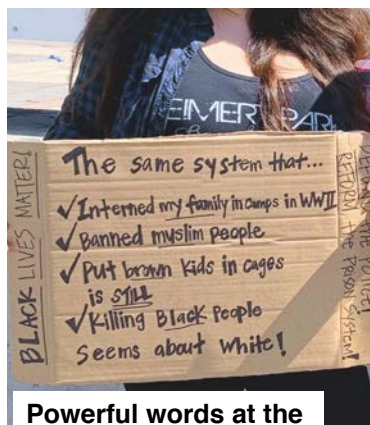 EIMERT PARK
BLACK LIVES MATTER!
The same system that...
✓Interned my family in camps in WWII
✓Banned muslim people
✓Put brown kids in cages
is STILL
✓Killing Black People
Seems about White!
DEFUND THE POLICE!
REFORM THE PRISON SYSTEM!
Powerful words at the